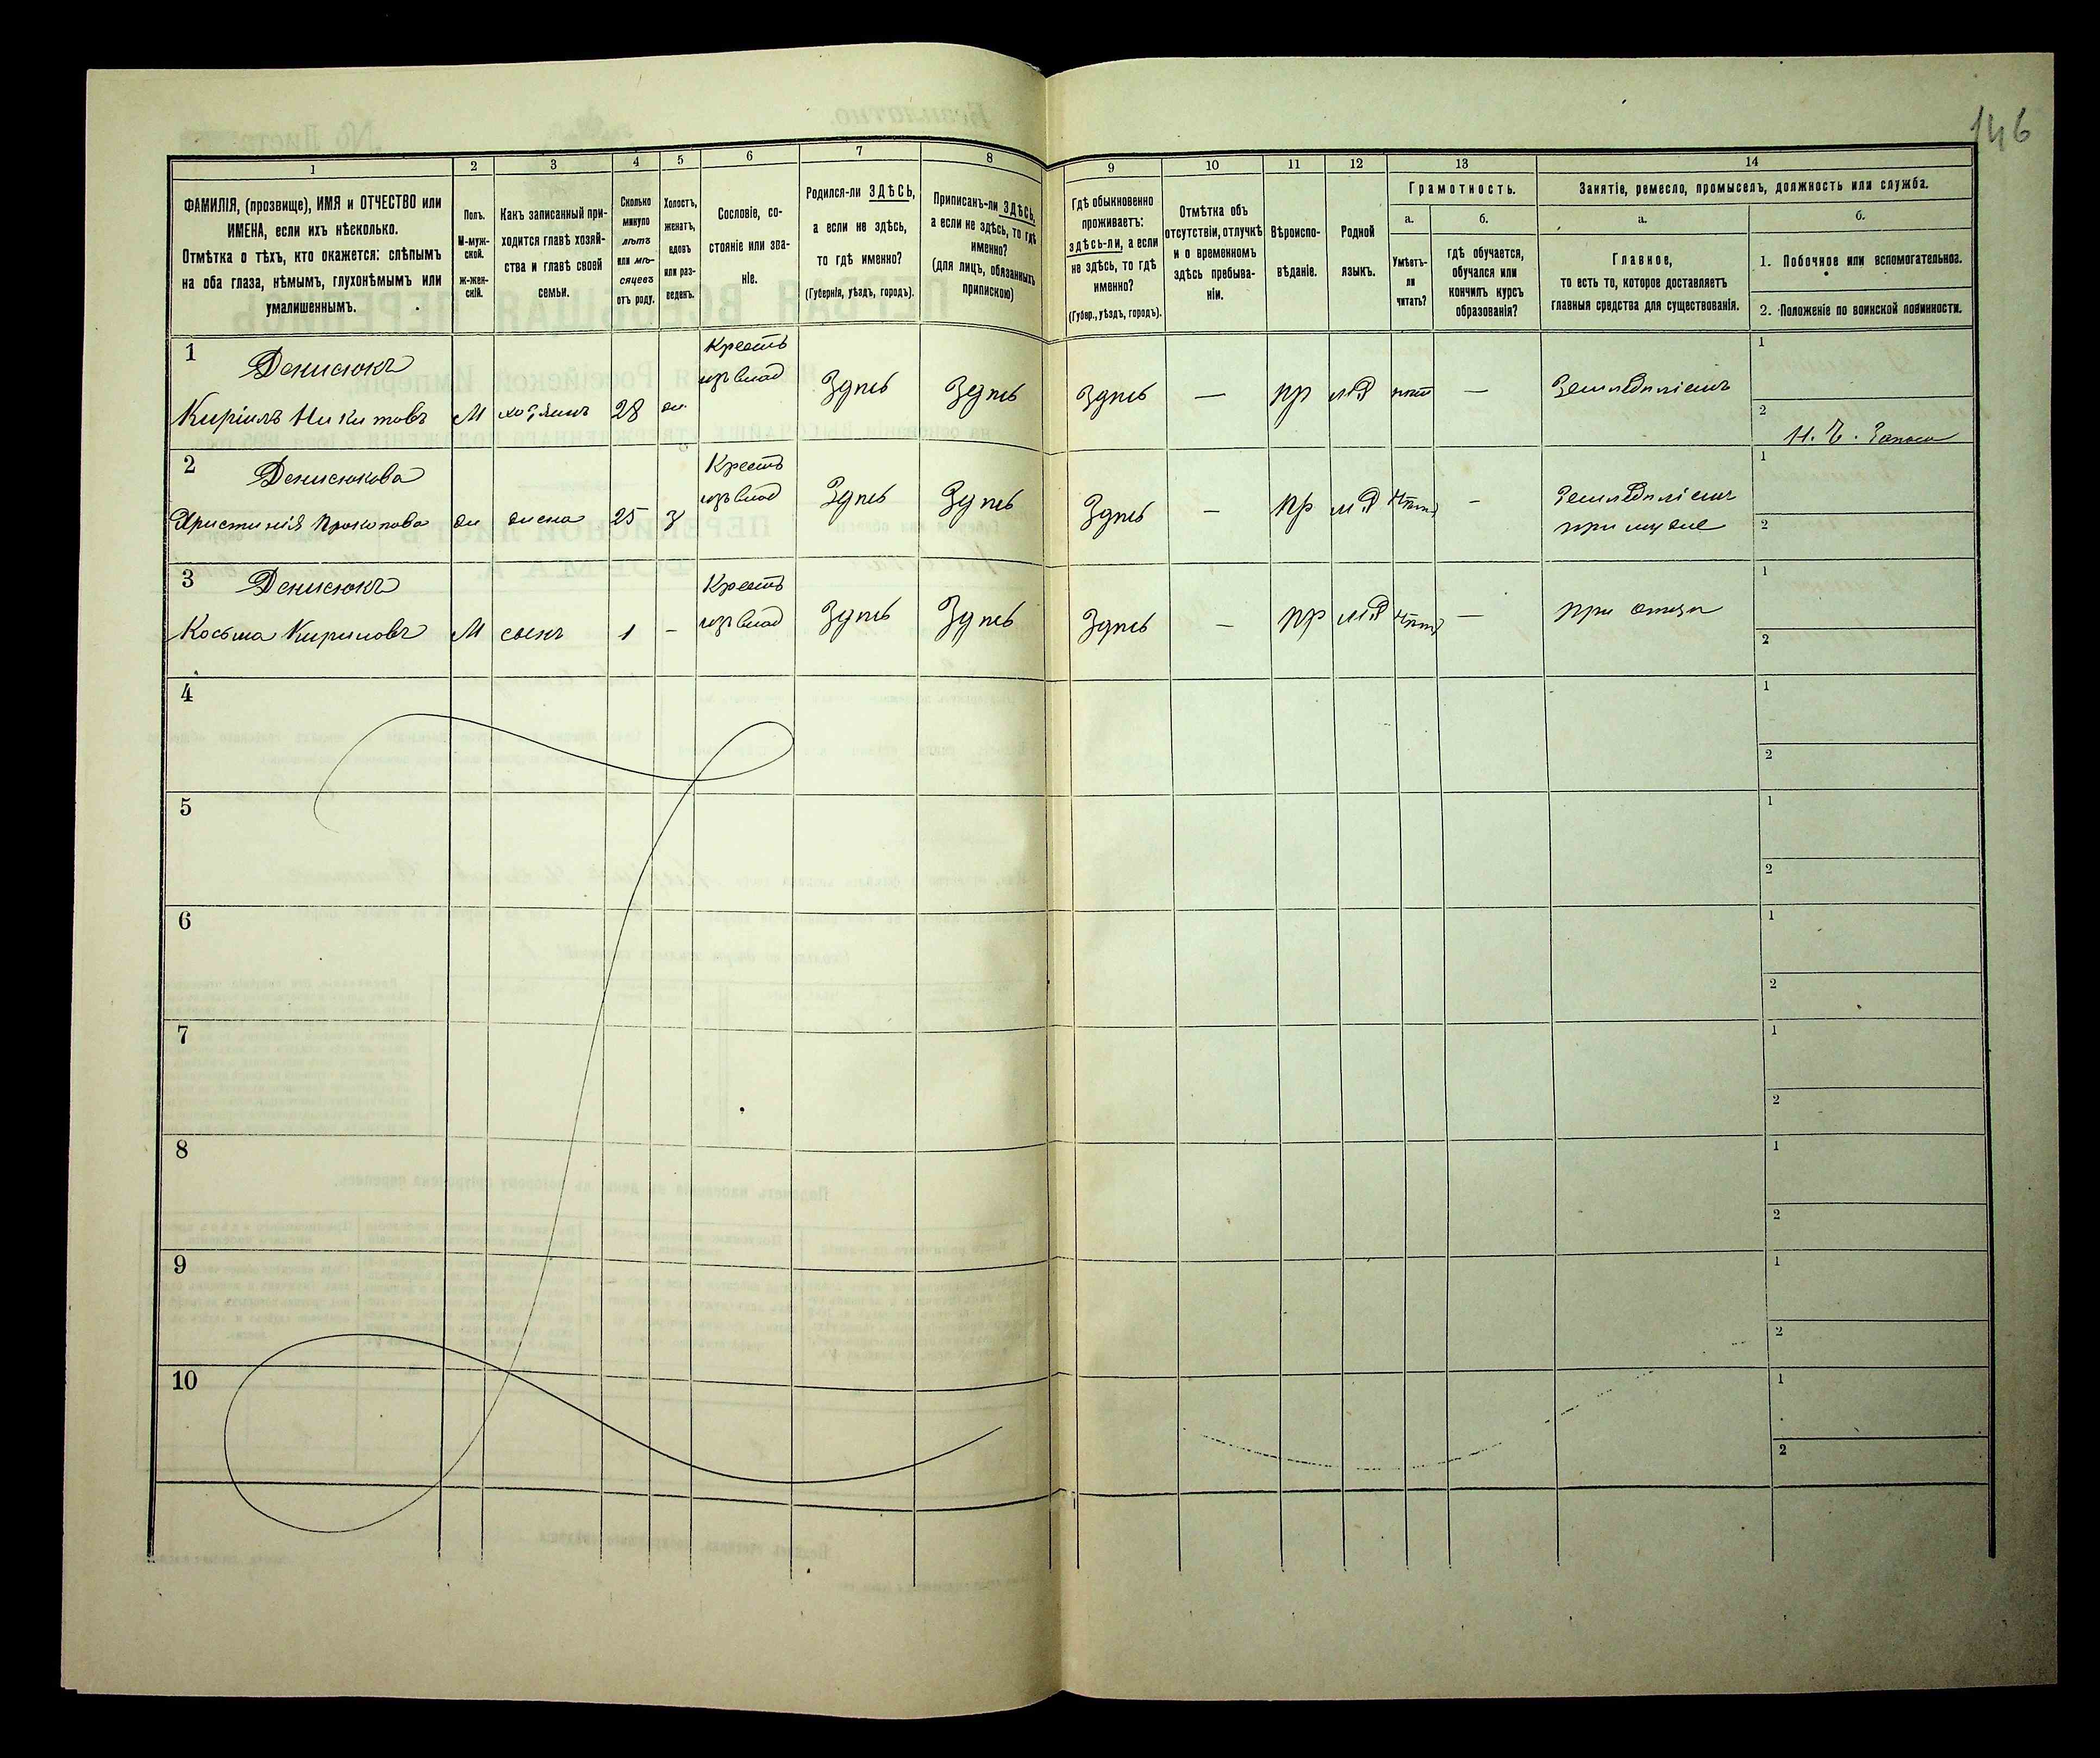 146
1
2
3
4
5
6
7
8
9
10
11
12
13
14
ФАМИЛІЯ, (прозвище), ИМЯ и ОТЧЕСТВО или
ИМЕНА, если ихъ нѣсколько.
Отмѣтка о тѣхъ, кто окажется: слѣпымъ
на оба глаза, нѣмымъ, глухонѣмымъ или
умалишеннымъ.
Полъ.
М-муж-
ской.
ж-жен-
скій.
Какъ записанный при-
ходится главѣ хозяй-
ства и главѣ своей
семьи.
Сколько
минуло
лѣтъ
или мѣ-
сяцевъ
отъ роду.
Холостъ,
женатъ,
вдовъ
или раз-
веденъ.
Сословіе, со-
стояніе или зва-
ніе.
Родился-ли ЗДѢСЬ,
а если не здѣсь,
то гдѣ именно?
(Губернія, уѣздъ, городъ).
Приписанъ-ли ЗДѢСЬ,
а если не здѣсь, то гдѣ
именно?
(для лицъ, обязанныхъ
припискою)
Гдѣ обыкновенно
проживаетъ:
здѣсь-ли, а если
не здѣсь, то гдѣ
именно?
(Губер., уѣздъ, городъ).
Отмѣтка объ
отсутствіи, отлучкѣ
и о временномъ
здѣсь пребыва-
ніи.
Вѣроиспо-
вѣданіе.
Родной
языкъ.
Грамотность.
а.
б.
Умѣетъ-
ли
читать?
гдѣ обучается,
обучался или
кончилъ курсъ
образованія?
Занятіе, ремесло, промыселъ, должность или служба.
а.
б.
Главное,
то есть то, которое доставляетъ
главныя средства для существованія.
1. Побочное или вспомогательное.
2. Положеніе по воинской повинности.
1
Денисюкъ
Кирилъ Никитовъ
М
хозяинъ
28
ж.
Кресть
изъ влад
Здѣсь
Здѣсь
Здѣсь
—
пр
мР
нѣт
—
Земледѣліемъ
1
2
И. Ч. Запаса
2
Денисюкова
Христинія Прокопова
ж
жена
25
з
Кресть
изъ влад
Здѣсь
Здѣсь
Здѣсь
—
пр
мР
нѣт
—
Земледѣліемъ
при муже
1
2
3
Денисюкъ
Косьма Кириловъ
М
сынъ
1
—
Кресть
изъ влад
Здѣсь
Здѣсь
Здѣсь
—
пр
мР
нѣт
—
при отцѣ
1
2
4
1
2
5
1
2
6
1
2
7
1
2
8
1
2
9
1
2
10
1
2